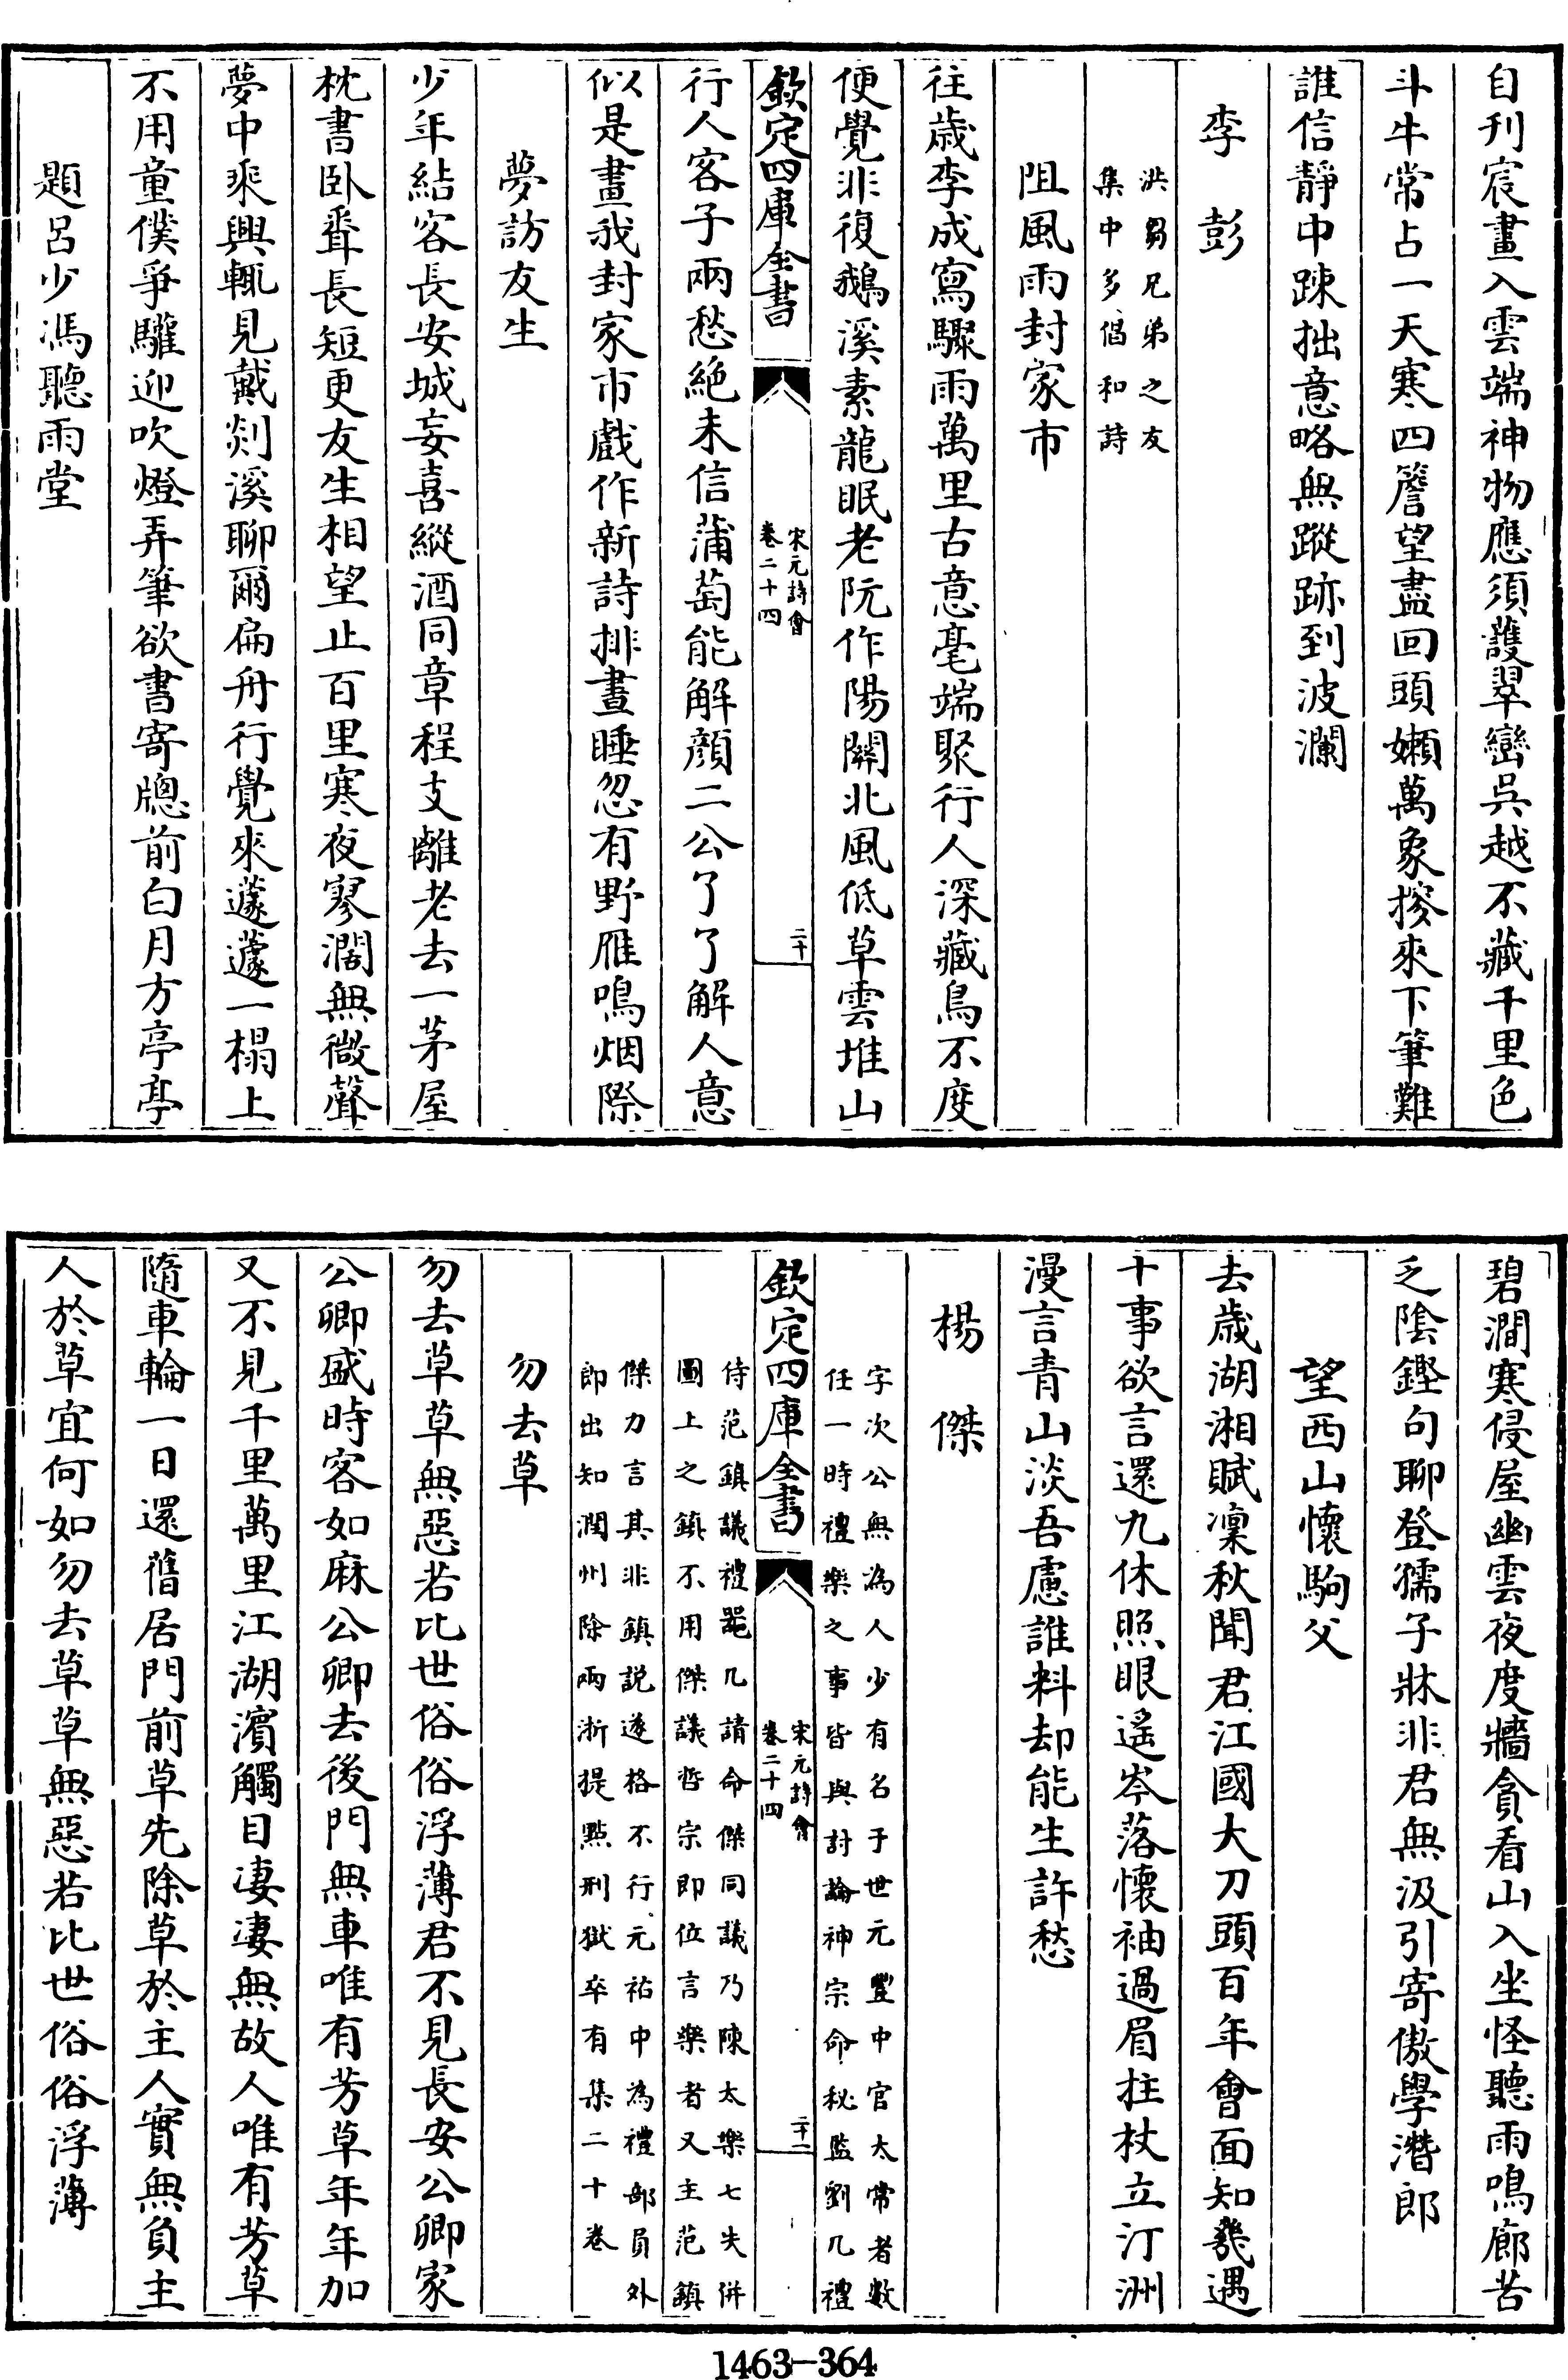 自刋宸畫入雲端神物應須䕶翠巒呉越不藏千里色
斗牛常占一天寒四簷望盡回頭嬾萬象搜來下筆難
誰信靜中踈拙意略無蹤跡到波瀾
李彭
洪芻兄弟之友
集中多倡和詩
阻風雨封家市
往歲李成寫驟雨萬里古意毫端聚行人深藏鳥不度
便覺非復鵝溪素龍眠老阮作陽關北風低草雲堆山
欽定四庫全書
宋元詩會
卷二十四
二十
行人客子兩愁絶未信蒲萄能解顔二公了了解人意
似是畫我封家市戲作新詩排晝睡忽有野雁鳴烟際
夢訪友生
少年結客長安城妄喜縱酒同章程支離老去一茅屋
枕書卧聽長短更友生相望止百里寒夜寥濶無微聲
夢中乘興輒見戴剡溪聊爾扁舟行覺來蘧蘧一榻上
不用童僕爭驩迎吹燈弄筆欲書寄牕前白月方亭亭
題呂少馮聽雨堂
碧澗寒侵屋幽雲夜度牆貪看山入坐怪聽雨鳴廊苦
乏陰鏗句聊登孺子牀非君無汲引寄傲學潛郎
望西山懷駒父
去歲湖湘賦凜秋聞君江國大刀頭百年會面知幾遇
十事欲言還九休照眼遙岑落懷袖過眉拄杖立汀洲
漫言青山淡吾慮誰料却能生許愁
楊傑
字次公無為人少有名于世元豐中官太常者數
任一時禮樂之事皆與討論神宗命秘監劉几禮
欽定四庫全書
宋元詩會
卷二十四
二十一
侍范鎮議禮器几請命傑同議乃陳太樂七失併
圖上之鎮不用傑議哲宗即位言樂者又主范鎮
傑力言其非鎮説遂格不行元祐中為禮部員外
郎出知潤州除兩浙提點刑獄卒有集二十卷
勿去草
勿去草草無惡若比世俗俗浮薄君不見長安公卿家
公卿盛時客如麻公卿去後門無車唯有芳草年年加
又不見千里萬里江湖濱觸目凄凄無故人唯有芳草
隨車輪一日還舊居門前草先除草於主人實無負主
人於草宜何如勿去草草無惡若比世俗俗浮薄
1463-364